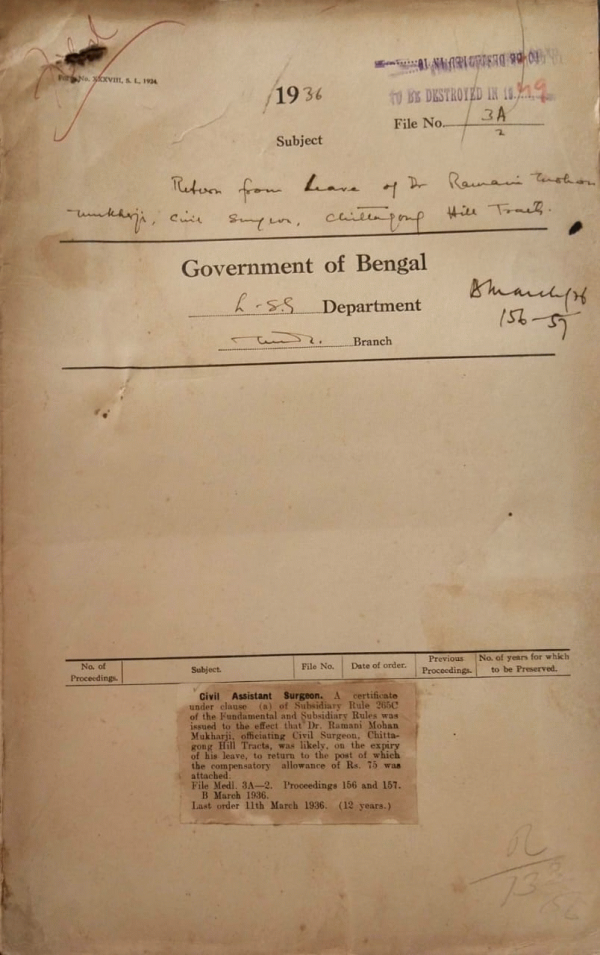 Filed
Form No. XXXVIII, S. L., 1934.
TO BE DESTROYED IN 19
1936
TO BE DESTROYED IN 19 49
File No. 3A
2
Subject
Return from Leave of Dr Ramani Mohan
Mukharji, Civil Surgeon, Chittagong Hill Tracts.
Government of Bengal
L.-S.G Department
B March/36
156-57
Medl. Branch
No. of
Proceedings.
Subject.
File No.
Date of order.
Previous
Proceedings.
No. of years for which
to be Preserved.
Civil Assistant Surgeon. A certificate
under clause (a) of Subsidiary Rule 265C
of the Fundamental and Subsidiary Rules was
issued to the effect that Dr. Ramani Mohan
Mukharji, officiating Civil Surgeon, Chitta-
gong Hill Tracts, was likely, on the expiry
of his leave, to return to the post of which
the compensatory allowance of Rs. 75 was
attached.
File Medl. 3A—2. Proceedings 156 and 157.
B March 1936.
Last order 11th March 1936. (12 years.)